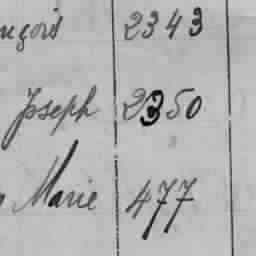 nçois 2343
Joseph 2350
Marie 477